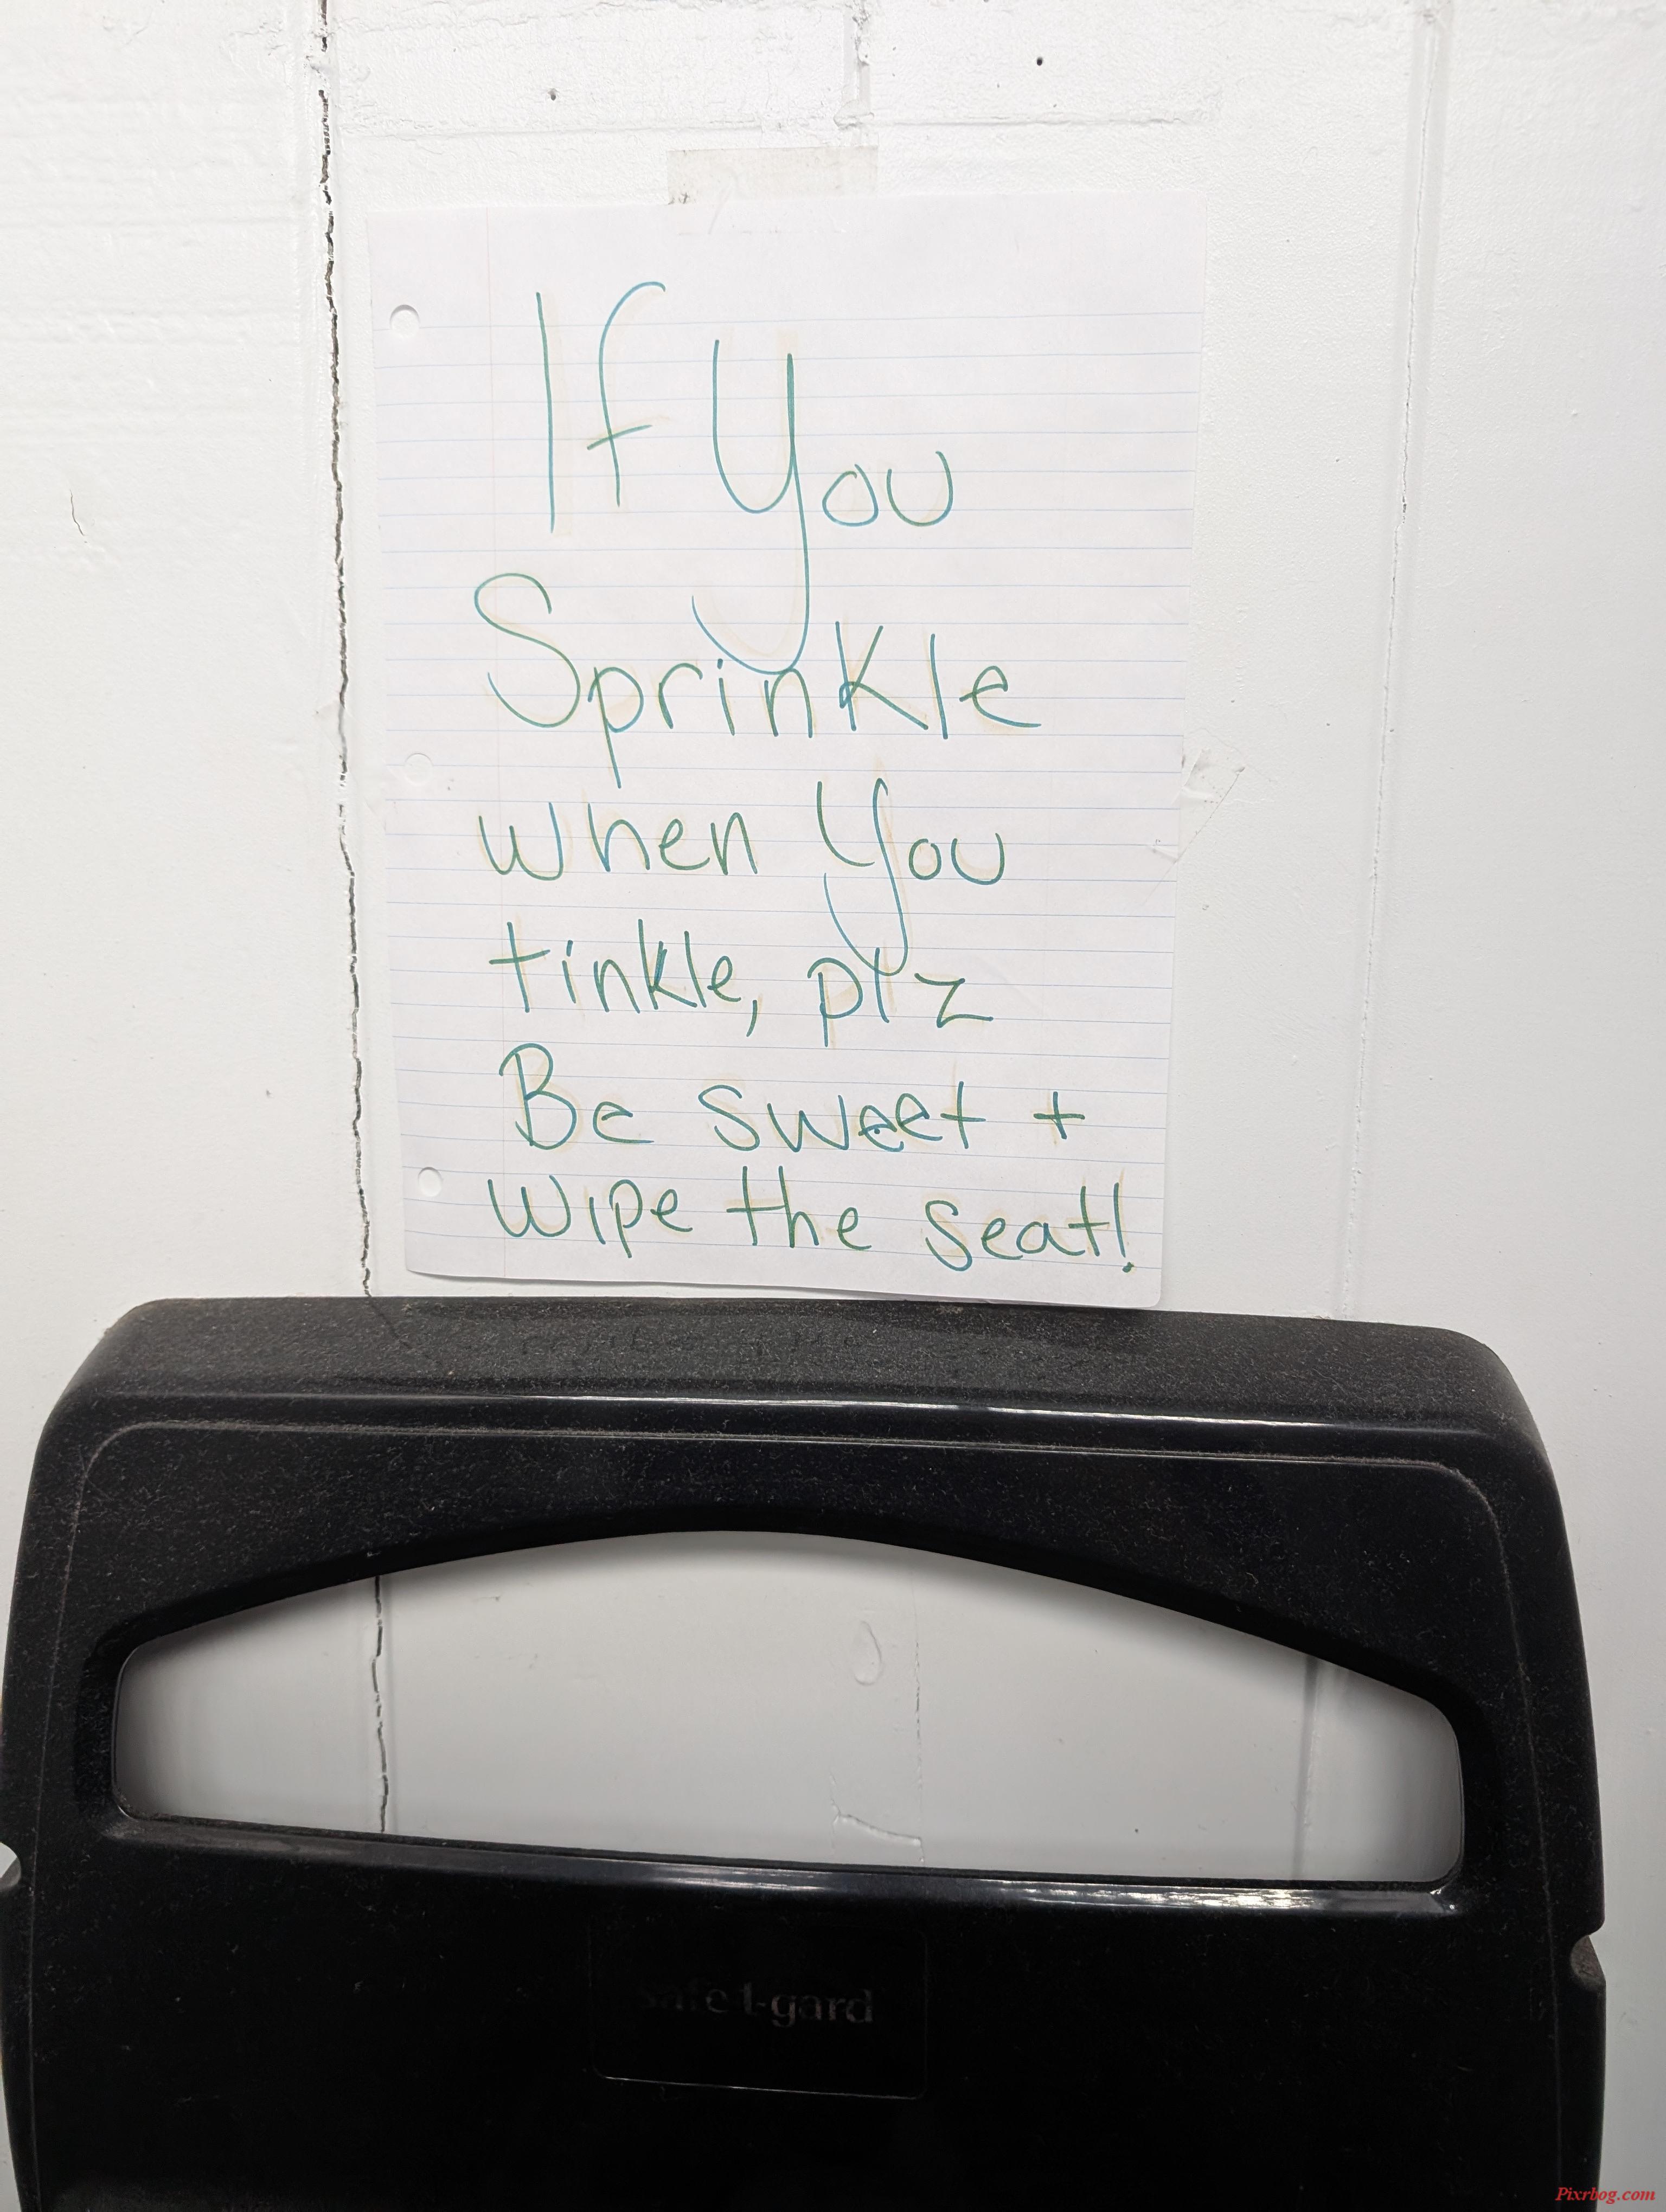 If You
Sprinkle
when You
tinkle, plz
Be sweet +
wipe the seat!
safe t-gard
Pixrbog.com